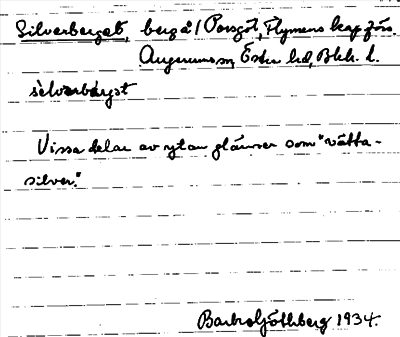 Silverberget, berg å/ Porsgöl, Flymens kapförs.
Augerums sn, Östra hd, Blek. l.
sèlvərbárgət
Vissa delar av ytan glänser som "vätta-
silver."
Barbro Göthberg 1934.